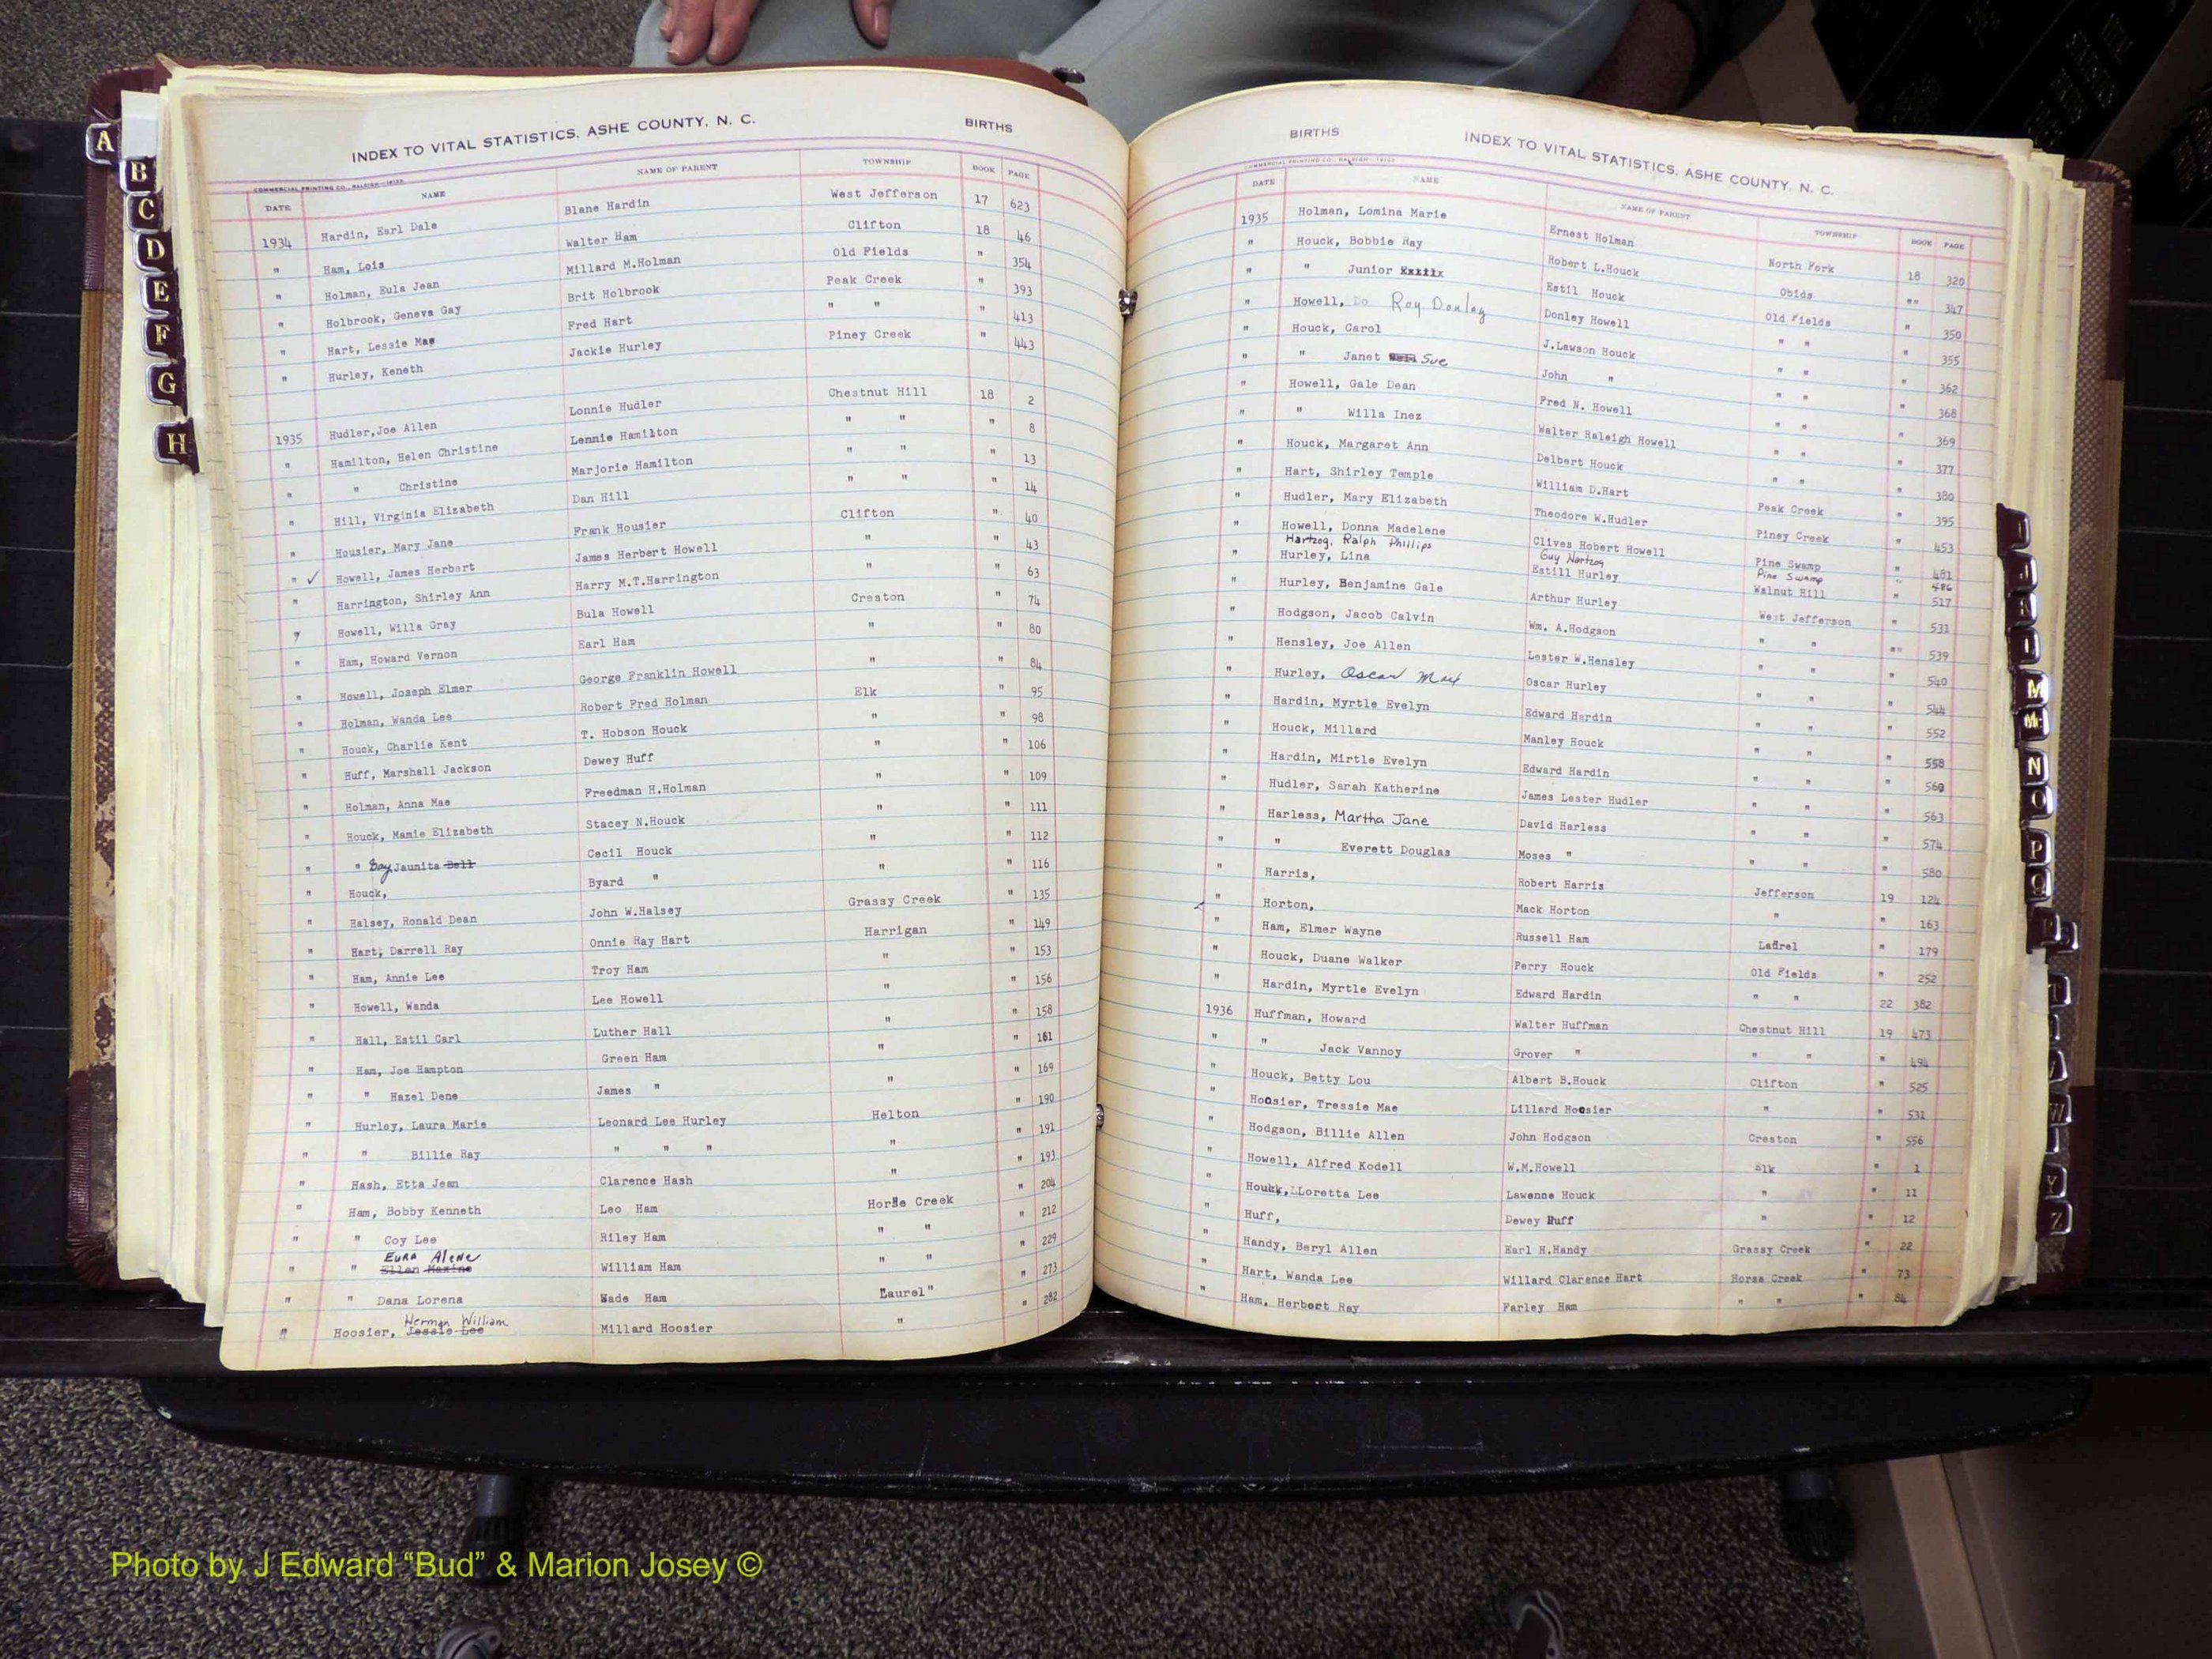 INDEX TO VITAL STATISTICS, ASHE COUNTY, N. C. BIRTHS
COMMERCIAL PRINTING CO., RALEIGH
DATE NAME NAME OF PARENT TOWNSHIP BOOK PAGE
1934 Hardin, Earl Dale Blane Hardin West Jefferson 17 623
" Ham, Lois Walter Ham Clifton 18 46
" Holman, Eula Jean Millard M.Holman Old Fields " 354
" Holbrook, Geneva Gay Brit Holbrook Peak Creek " 393
" Hart, Lessie Mae Fred Hart " " " 413
" Hurley, Keneth Jackie Hurley Piney Creek " 443
1935 Hudler,Joe Allen Lonnie Hudler Chestnut Hill 18 2
" Hamilton, Helen Christine Lennie Hamilton " " " 8
" " Christine Marjorie Hamilton " " " 13
" Hill, Virginia Elizabeth Dan Hill " " " 14
" Housier, Mary Jane Frank Housier Clifton " 40
" ✓ Howell, James Herbert James Herbert Howell " " 43
" Harrington, Shirley Ann Harry M.T.Harrington " " 63
" Howell, Willa Gray Bula Howell Creston " 74
" Ham, Howard Vernon Earl Ham " " 80
" Howell, Joseph Elmer George Franklin Howell " " 84
" Holman, Wanda Lee Robert Fred Holman Elk " 95
" Houck, Charlie Kent T. Hobson Houck " " 98
" Huff, Marshall Jackson Dewey Huff " " 106
" Holman, Anna Mae Freedman H.Holman " " 109
" Houck, Mamie Elizabeth Stacey N.Houck " " 111
" " Jaunita Bell Cecil Houck " " 112
" Houck, Byard " " " 116
" Halsey, Ronald Dean John W.Halsey Grassy Creek " 135
" Hart, Darrell Ray Onnie Ray Hart Harrigan " 149
" Ham, Annie Lee Troy Ham " " 153
" Howell, Wanda Lee Howell " " 156
" Hall, Estil Carl Luther Hall " " 158
" Ham, Joe Hampton Green Ham " " 161
" " Hazel Dene James " " " 169
" Hurley, Laura Marie Leonard Lee Hurley Helton " 190
" " Billie Ray " " " " " 191
" Hash, Etta Jean Clarence Hash " " 193
" Ham, Bobby Kenneth Leo Ham Horse Creek " 204
" " Coy Lee Riley Ham " " " 212
Eura Alene
" " Ellen Maxine William Ham " " " 229
" " Dana Lorena Wade Ham Laurel" " 273
Herman William
" Hoosier, Jessie Lee Millard Hoosier " " 282
BIRTHS INDEX TO VITAL STATISTICS, ASHE COUNTY, N. C.
COMMERCIAL PRINTING CO., RALEIGH
DATE NAME NAME OF PARENT TOWNSHIP BOOK PAGE
1935 Holman, Lomina Marie Ernest Holman North Fork 18 320
" Houck, Bobbie Ray Robert L.Houck Obids "" 347
" " Junior Estil Houck Old Fields " 350
" Howell, Do Roy Donley Donley Howell " " " 355
" Houck, Carol J.Lawson Houck " " " 362
" " Janet Sue John " " " " 368
" Howell, Gale Dean Fred N. Howell " " " 369
" " Willa Inez Walter Raleigh Howell " " " 377
" Houck, Margaret Ann Delbert Houck " " " 380
" Hart, Shirley Temple William D.Hart Peak Creek " 395
" Hudler, Mary Elizabeth Theodore W.Hudler Piney Creek " 453
" Howell, Donna Madelene Clives Hobert Howell Pine Swamp " 481
Hartzog, Ralph Phillips Guy Hartzog Pine Swamp " 486
" Hurley, Lina Estill Hurley Walnut Hill " 517
" Hurley, Benjamine Gale Arthur Hurley West Jefferson " 531
" Hodgson, Jacob Calvin Wm. A.Hodgson " " "" 539
" Hensley, Joe Allen Lester W.Hensley " " " 540
" Hurley, Oscar Max Oscar Hurley " " " 544
" Hardin, Myrtle Evelyn Edward Hardin " " " 552
" Houck, Millard Manley Houck " " " 558
" Hardin, Mirtle Evelyn Edward Hardin " " " 560
" Hudler, Sarah Katherine James Lester Hudler " " " 563
" Harless, Martha Jane David Harless " " " 574
" " Everett Douglas Moses " " " " 580
" Harris, Robert Harris Jefferson 19 124
" Horton, Mack Horton " " 163
" Ham, Elmer Wayne Russell Ham Laurel " 179
" Houck, Duane Walker Perry Houck Old Fields " 252
" Hardin, Myrtle Evelyn Edward Hardin " " 22 382
1936 Huffman, Howard Walter Huffman Chestnut Hill 19 473
" " Jack Vannoy Grover " " " " 494
" Houck, Betty Lou Albert B.Houck Clifton " 525
" Hoosier, Tressie Mae Lillard Hoosier " " 531
" Hodgson, Billie Allen John Hodgson Creston " 556
" Howell, Alfred Kodell W.M.Howell Elk " 1
" Houck, Lloretta Lee Lawence Houck " " 11
" Huff, Dewey Huff " " 12
" Handy, Beryl Allen Earl H.Handy Grassy Creek " 22
" Hart, Wanda Lee Willard Clarence Hart Horse Creek " 73
" Ham, Herbert Ray Farley Ham " " " 84
A
B
C
D
E
F
G
H
M
Mc
N
O
P
Q
W
Y
Z
Photo by J Edward “Bud” & Marion Josey ©